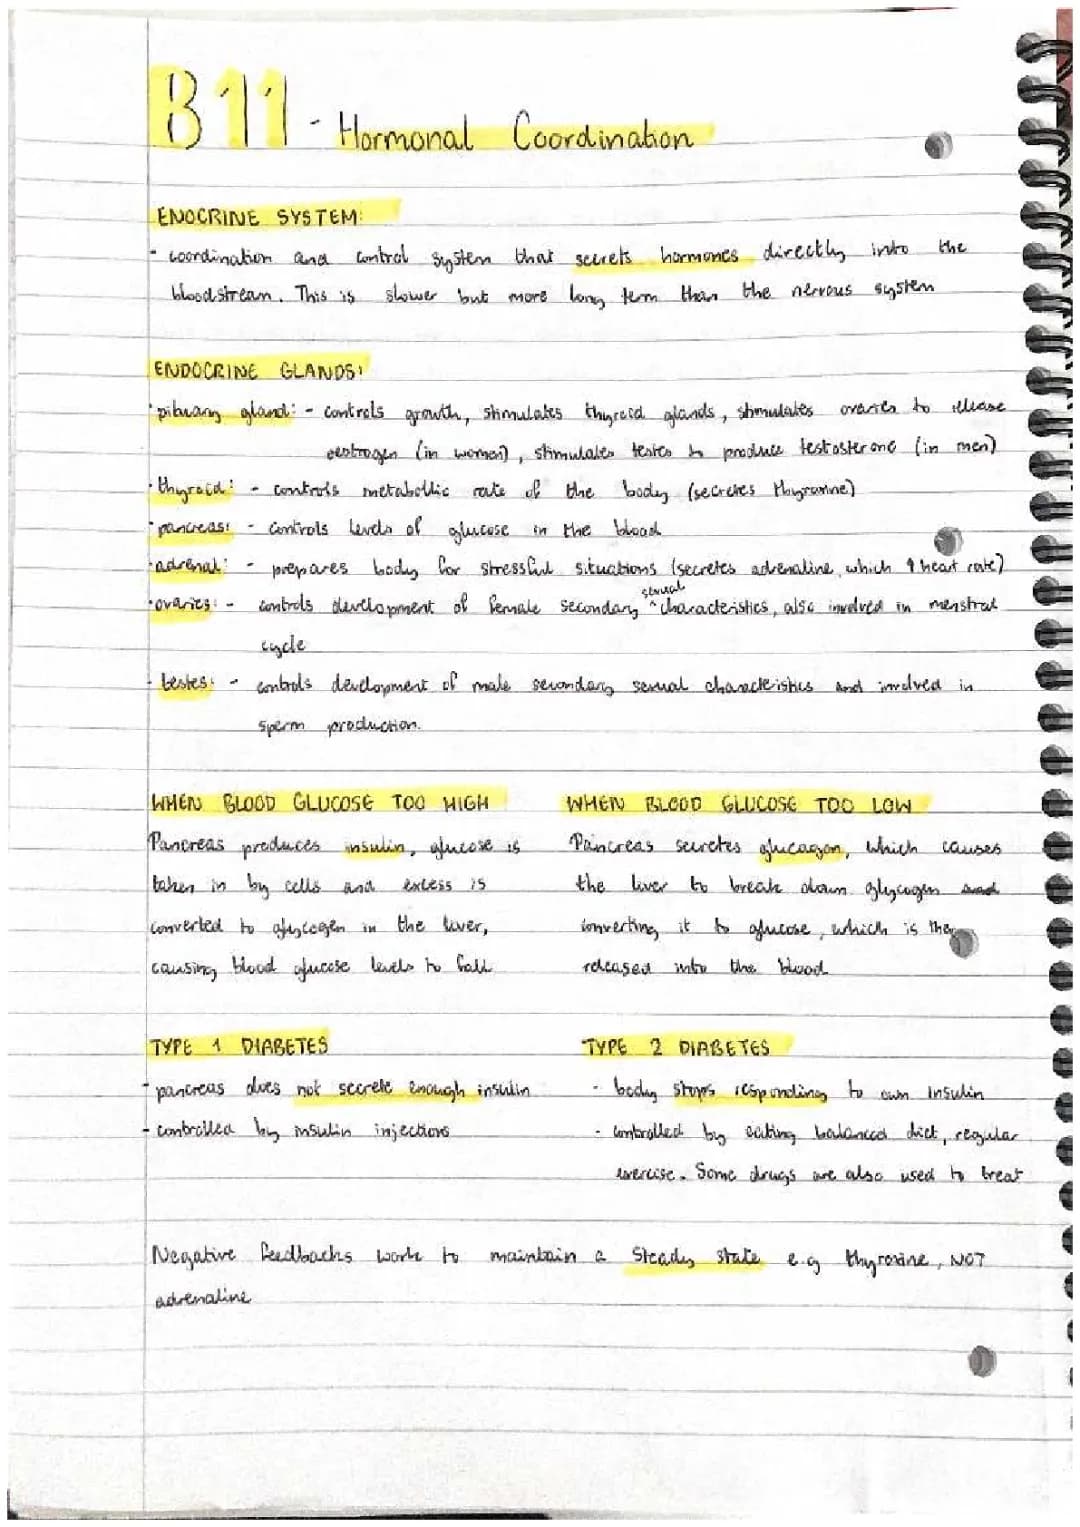 B11 - Hormonal Coordination
ENOCRINE SYSTEM:
- coordination and control system that secrets hormones directly into the
bloodstream. This is slower but more long term than the nervous system
ENDOCRINE GLANDS:
· pituary gland: - controls growth, stimulates thyroid glands, stimulates ovaries to release
oestrogen (in women), stimulates testes to produce testosterone (in men)
· thyroid: - controls metabollic rate of the body (secretes thyroxine)
· pancreas: - controls levels of glucose in the blood
· adrenal: - prepares body for stressful situations (secretes adrenaline, which ↑ heart rate)
· ovaries: - controls development of female secondary ^sexual characteristics, also involved in menstral
cycle
· testes: - controls development of male secondary sexual characteristics and involved in
sperm production.
WHEN BLOOD GLUCOSE TOO HIGH
Pancreas produces insulin, glucose is
taken in by cells and excess is
converted to glycogen in the liver,
causing blood glucose levels to fall
WHEN BLOOD GLUCOSE TOO LOW
Pancreas secretes glucagon, which causes
the liver to break down glycogen
converting it to glucose, which is then
released into the blood
TYPE 1 DIABETES
- pancreas does not secrete enough insulin
- controlled by insulin injections
TYPE 2 DIABETES
- body stops responding to own insulin
- controlled by eating balanced diet, regular
exercise. Some drugs are also used to treat
Negative feedbacks work to maintain a steady state e.g thyroxine, NOT
adrenaline